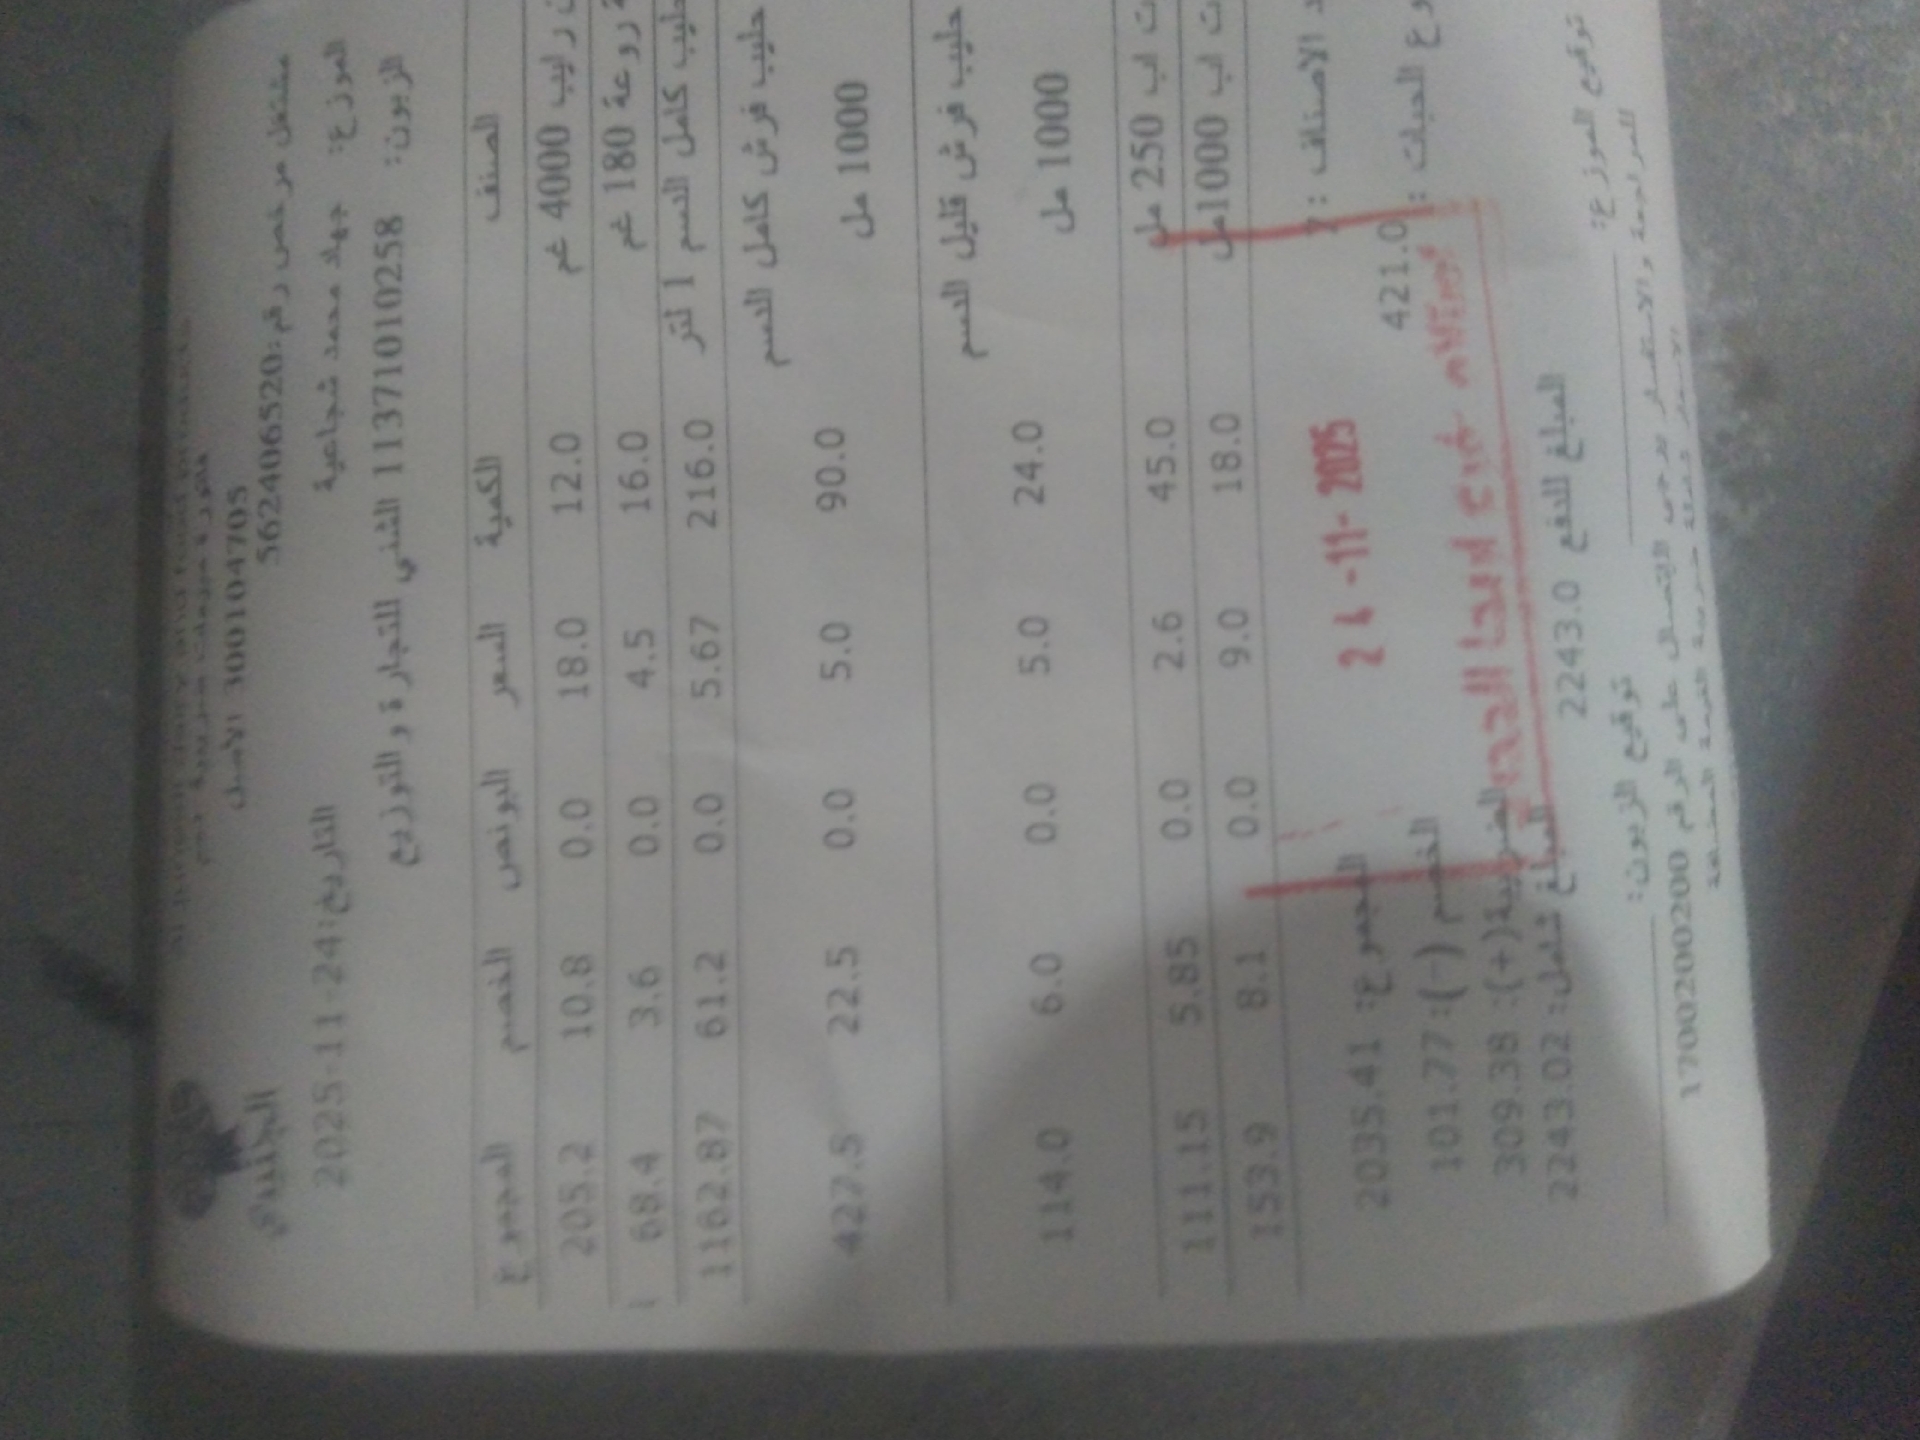 الجنيدي
300104705 الاصل
مشتغل مرخص رقم:562406520
الموزع: جهاد محمد شجاعية
التاريخ:24-11-2025
الزبون: 1137101010258 الشني للتجارة و التوزيع
الصنف الكمية السعر البونص الخصم المجموع
رايب 4000 غم 12.0 18.0 0.0 10.8 205.2
روعة 180 غم 16.0 4.5 0.0 3.6 68.4
حليب كامل الدسم 1 لتر 216.0 5.67 0.0 61.2 1162.87
حليب فرش كامل الدسم
1000 مل 90.0 5.0 0.0 22.5 427.5
حليب فرش قليل الدسم
1000 مل 24.0 5.0 0.0 6.0 114.0
ت اب 250 مل 45.0 2.6 0.0 5.85 111.15
ت اب 1000مل 18.0 9.0 0.0 8.1 153.9
د الاصناف : 7
24-11-2025
المجموع: 2035.41
وع الحبات : 421.0
الخصم (-): 101.77
الضريبة(+): 309.38
المبلغ شامل: 2243.02
المبلغ للدفع 2243.0
توقيع الموزع:
توقيع الزبون:
للمراجعة والاستفسار يرجى الاتصال على الرقم 1700200200